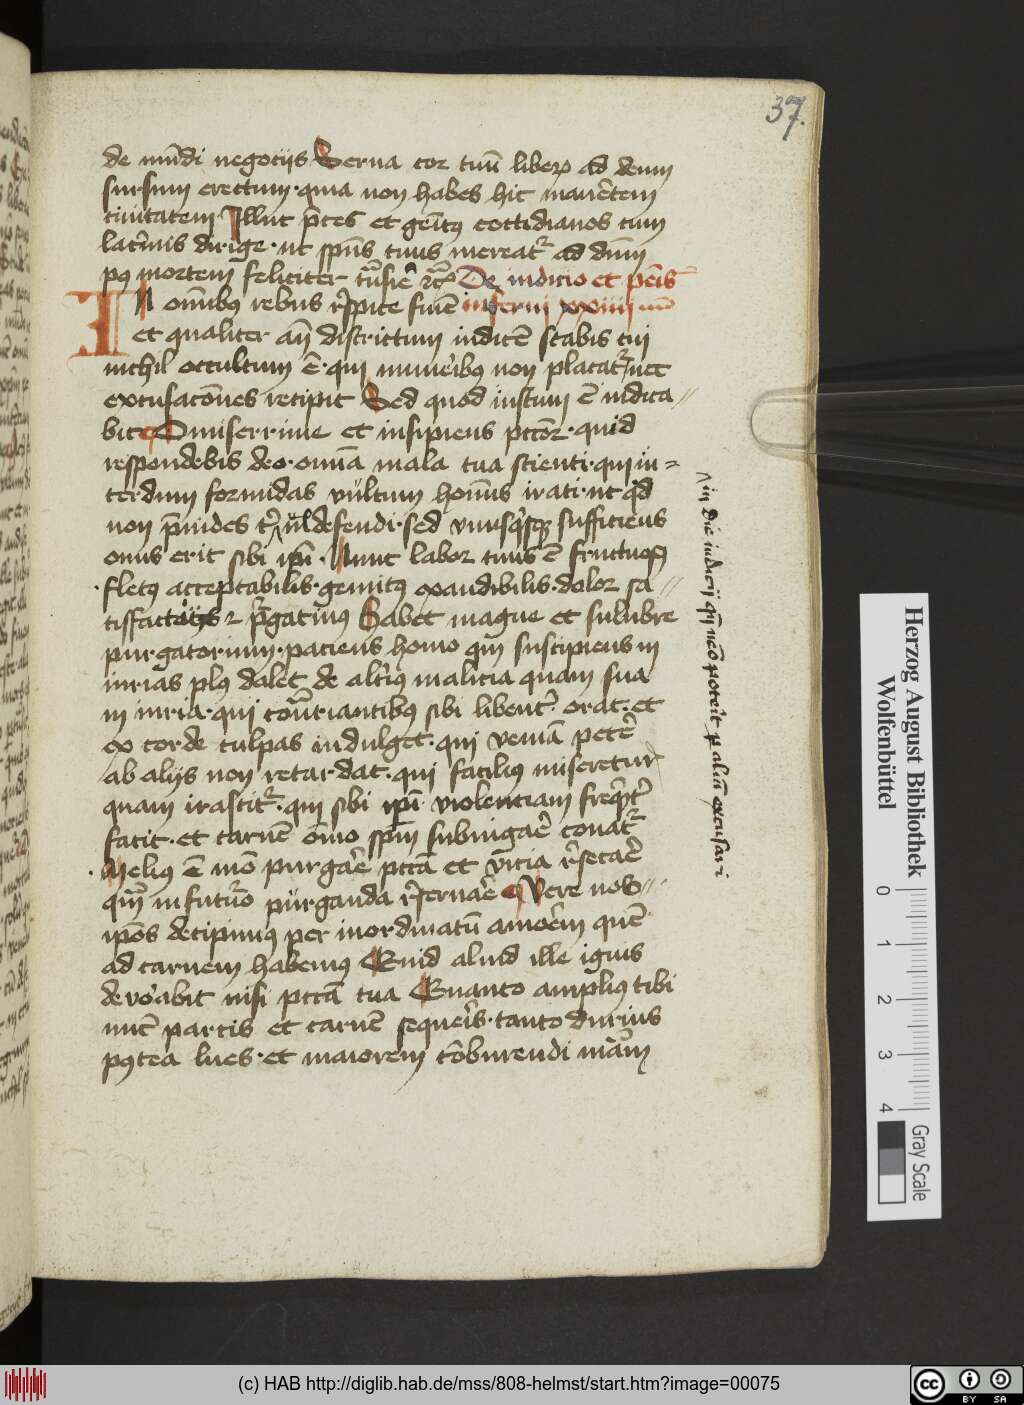 37.
de mu̅di negotijs Serua cor tuu̅ liberu̅ ad deum
sursum erectum · quia non habes hic mane̅tem
ciuitatem Illuc p̅ces et ge̅it9 cottidianos cum
lacri̅mis dirige · ut sp̅us tuus mereat͛ ad dn̅m
p9 mortem feliciter tra̅sire ⁊c̅ De iudicio et pe̅is
IN om̅ib9 rebus respice fine̅ inferni xxiiii
et qualiter an̅ districtum iudice̅ stabis cui
nichil occultum e̅ · qui mun̅eib9 non placat͛ nec
excusaco̅nes recipit Sed quod iustum e̅ iudica=
bit O miserrime et insipiens pcco̅r · quid
respondebis deo · omnia mala tua scienti · qui in=
terdum formidas vultum homi̅s irati · ut q̅d
non p̅uides t̅ ul̅ defendi · sed vnusq̅sq3 sufficiens
onus erit sibi ip̅i · Nunc labor tuus e̅ fructuos9
· flet9 acceptabilis · gemit9 exaudibilis · dolor sa=
tisfactorius ⁊ p̅gatiu9 Habet magne et salubre
purgatorium · paciens homo qui suscipiens in
iurias pl9 dolet de alteri9 malicia quam sua
in iuria · qui co̅t̅riantib9 sibi libent͛ orat · et
ex corde culpas indulget · qui venia̅ pete̅
ab alijs non retardat · qui facili9 miseretur
quam irascit͛ · qui sibi ip̅i violentiam freq̅nt͛
facit · et carne̅ om̅o sp̅ui subiugar̅e conat͛
· Meli9 e̅ mo̅ purgar̅e pcca̅ et vi̅cia r̅secar̅e
qua̅ in futur̅o purganda r̅seruar̅e Vere nos=
ip̅os decipim9 per inordinatu̅ amor̅em que̅
ad carnem habem9 Quid aliud ille ignis
deuorabit nisi pcca̅ tua Quanto ampli9 tibi
nu̅c parcis et carne̅ sequeri̅s · tanto durius
p9tea lues · et maiorem co̅burendi ma̅m
^ in die iudicij qn̅ nemo̅ poterit p aliu̅ excusari
Herzog August Bibliothek
Wolfenbüttel
0 1 2 3 4
Gray Scale
(c) HAB http://diglib.hab.de/mss/808-helmst/start.htm?image=00075
cc BY SA